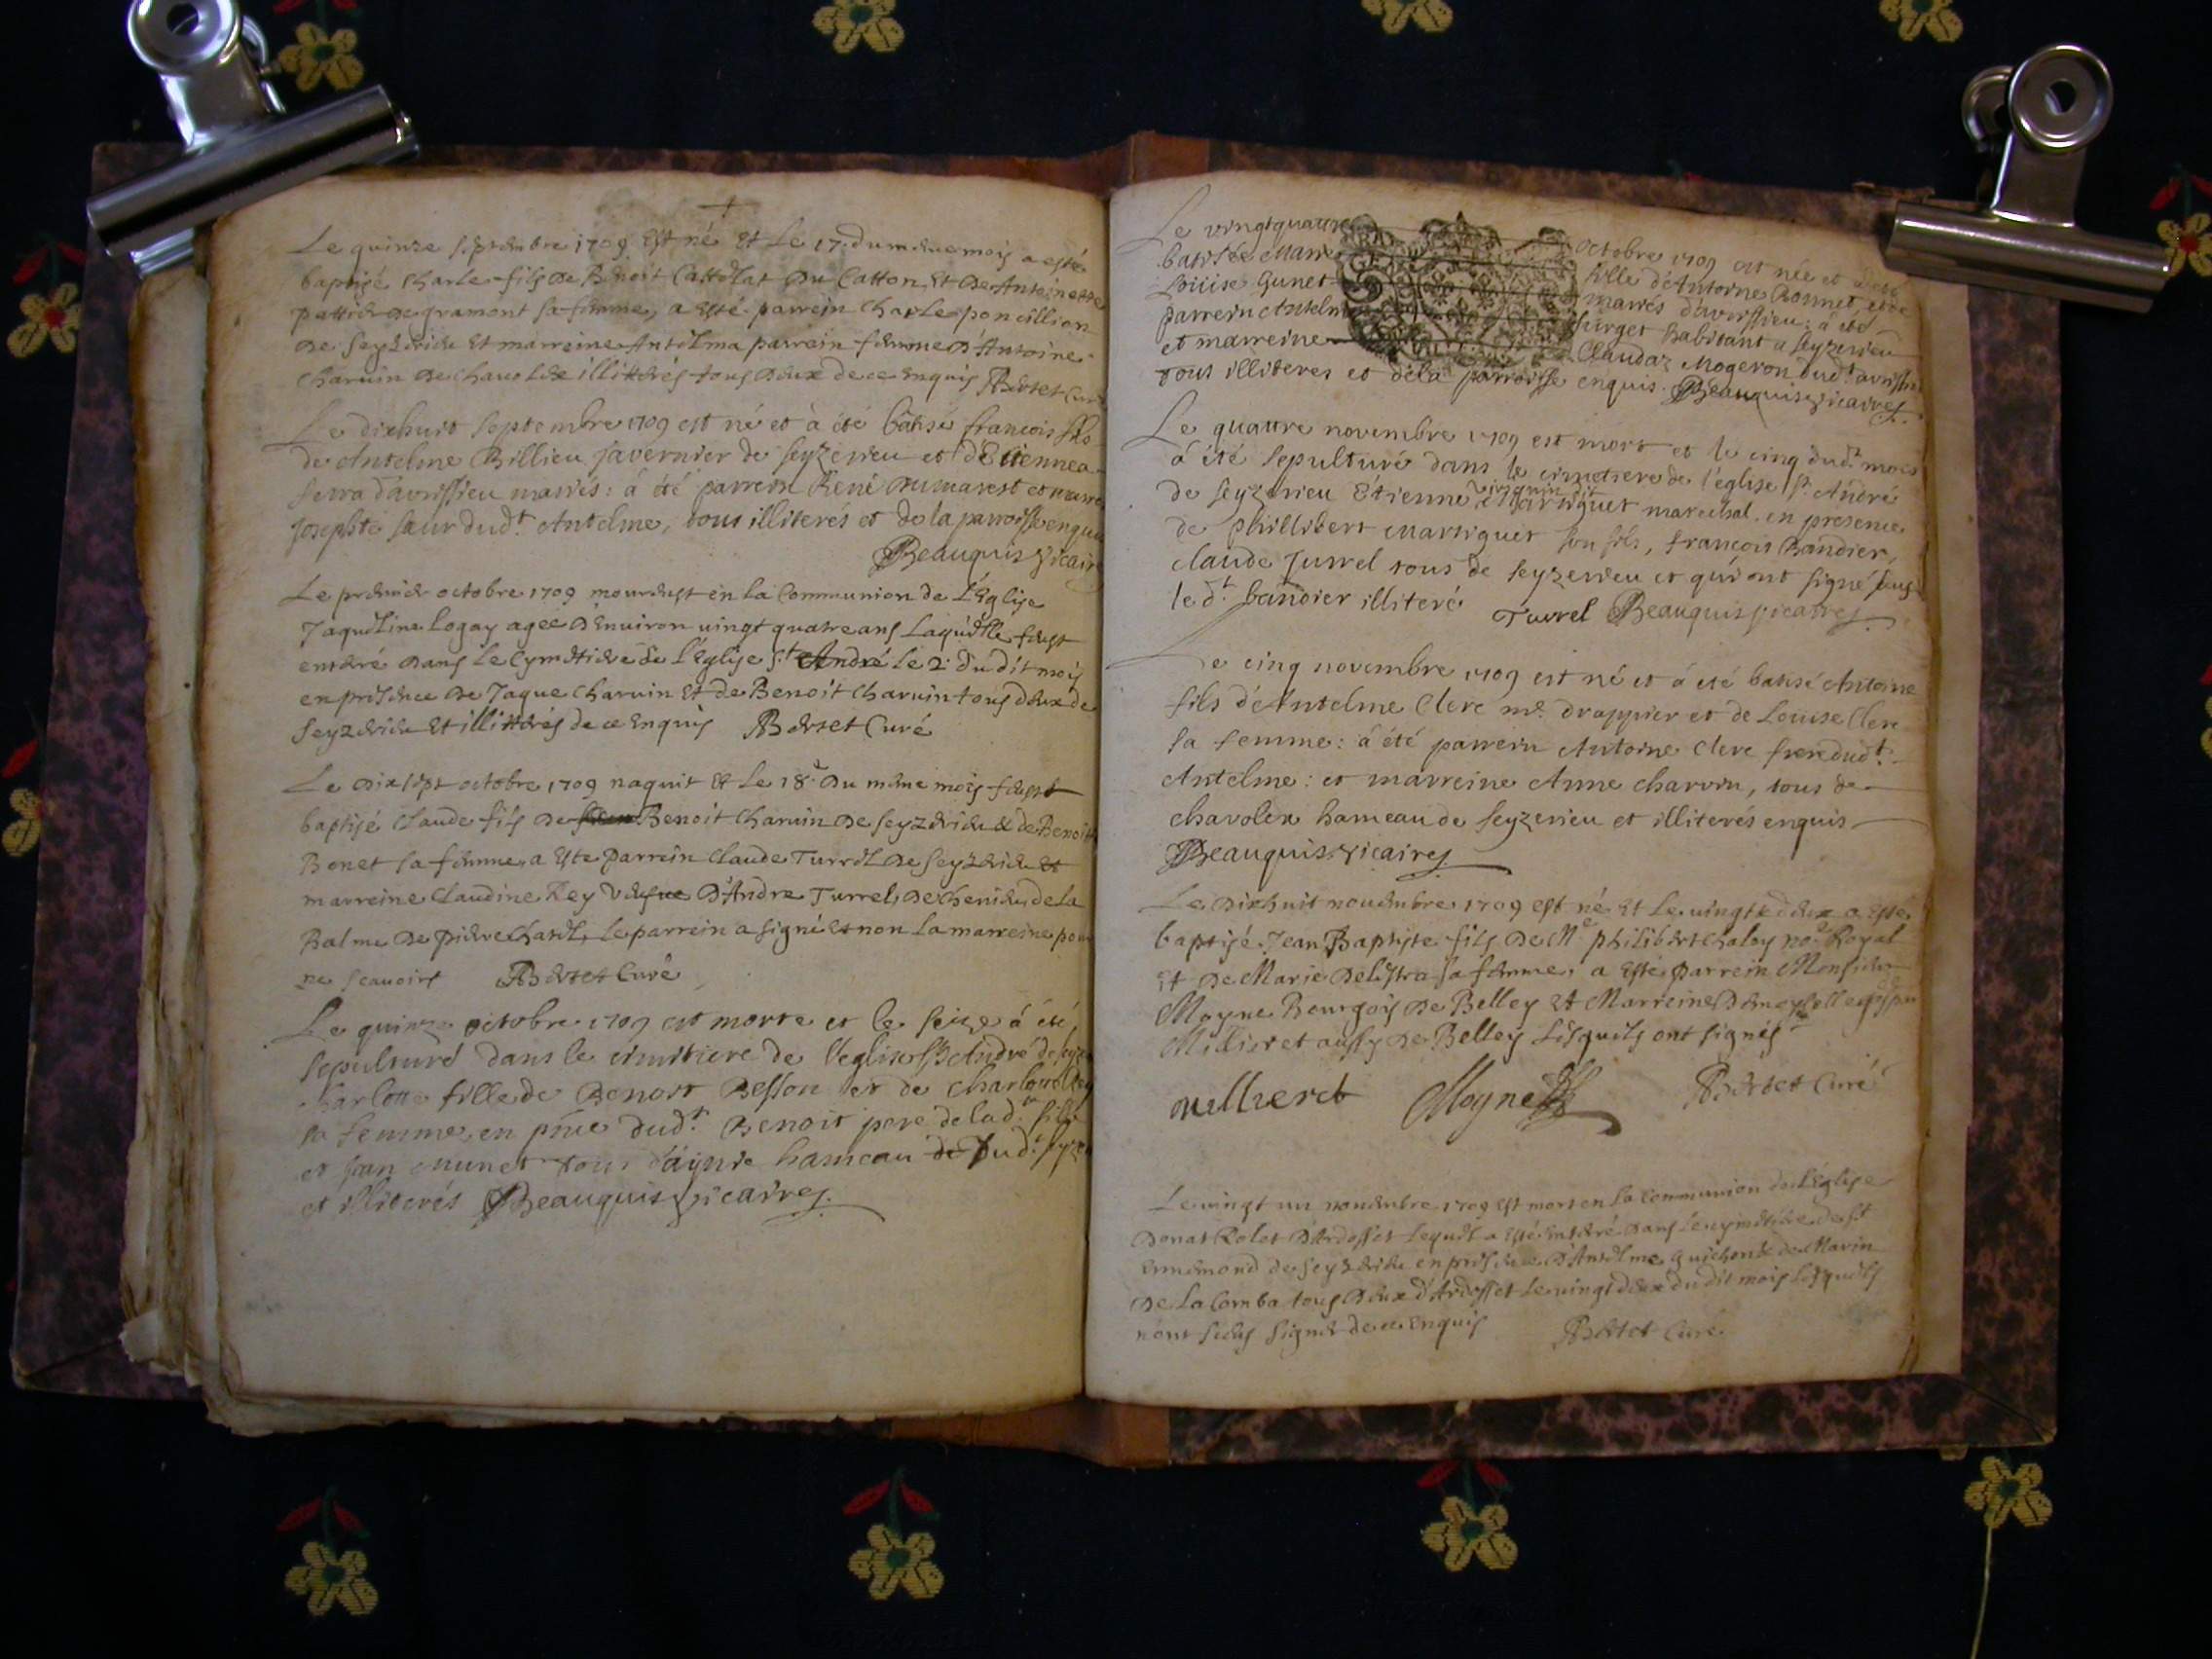 Le quinze septembre 1709 Est né Et Le 17. du mesme mois a esté
baptizé Charle fils de Benoit Cattolat du Catton Et de Antoinette
de gramont sa femme, a Esté parrein Charle poncillion
de Seyzerieu Et marreine Antelma parrein femme d'Antoine
Charuin de Chauolex illitterés tous deux de ce Enquis Bertet Curé
Le dixhuit septembre 1709 est né et à été batisé francois fils
de Antelme Billieu de Seyzerieu et d'Etiennea
serra d'avrissieu mariés: á été parrein René et marre
Josephte sœur dud.t Antelme, tous illiterés et de la parroisse enquis
Beauquis Vicaire
Le premier octobre 1709 mourust en la Communion de L'Église
Jaqueline Logay agée d'Enuiron uingt quatre ans Laquelle fust
enterré dans Le Cymetiere de L'Eglise S.t André le 2. dudit mois
en presence de Jaque Charuin Et de Benoit Charuin tous deux de
Seyzerieu Et illitterés de ce Enquis Bertet Curé
Le dix sept octobre 1709 naquit Et Le 18.e du même mois fust
baptisé Claude fils de Benoit Charuin de Seyzerieu & de Benoite
Bonet sa femme, a Este parrein Claude Turrel de Seyzerieu et
marreine Claudine Rey Vefue d'Andre Turrel, de Chenieu, de la
Balme de pierre Chatel, Le parrein a signé Et non la marreine pour
ne scauoirs Bertet Curé
Le quinze octobre 1709 est morte et le seize á été
sepulturé dans le cimitiere de l'eglise S.t André de seyz
Charlotte fille de Benoit Besson et de Charlotte Rey
sa femme, en pñce dud.t Benoit pere de lad.te fille
et Jean Munet tous d'aijnie hameau de dud.t Seyze
et illiterés Beauquis Vicaire
Le vingtquattre octobre 1709 est née et a été
batisée Marie fille d'Antoine Bonnet, et de
Loüise Gunet mariés d'avrissieu: á été
parrein Antelme surget habitant a seyzerieu
et marreine Claudaz Mogeron dud.t avrissieu
tous illiteres et déla parroisse enquis. Beauquis Vicaire
Le quattre novembre 1709 est mort et le cinq dud.t mois
á été sepulturé dans le cimetiere de l'église S.t André
de seyzerieu Étienne Martiguet marechal. en presence
de Phillibert Martiguet son fils, françois Bandier,
claude Turrel tous de seyzerieu et qui ont signé sauf
le d.t bandier illiteré Turrel Beauquis Vicaire
Le cinq novembre 1709 est né et á été batisé Antoine
fils d'Antelme Clerc m.e drappier et de Loüise Clerc
sa femme: á été parrein Antoine Clerc frere dud.t
Antelme: et marreine Anne charvin, tous de
chavolex hameau de seyzerieu et illiterés enquis
Beauquis Vicaire
Le dixhuit nouembre 1709 est né Et Le uingt & deux a Esté
baptisé Jean Baptiste fils de M.e philibert Chaloy no.re Royal
Et de Marie Delestra sa femme, a Esté parrein Monsieur
Moyne Bourgois de Belley Et Marreine Demoyselle
Millieret aussy de Belley Lesquels ont signés
millieret Moyne Bertet Curé
Le uingt un nouembre 1709 est mort en La Communion de L'Église
Donat Rolet d'Ardosset Lequel a Esté Enterré dans Le cymetiere de S.t
Ennemond de Seyzerieu en presence d'Antelme guichon & de Marin
De La Comba tous deux d'Ardosset Le uingt deux dudit mois Lesquels
n'ont sceus signer de ce Enquis Bertet Curé